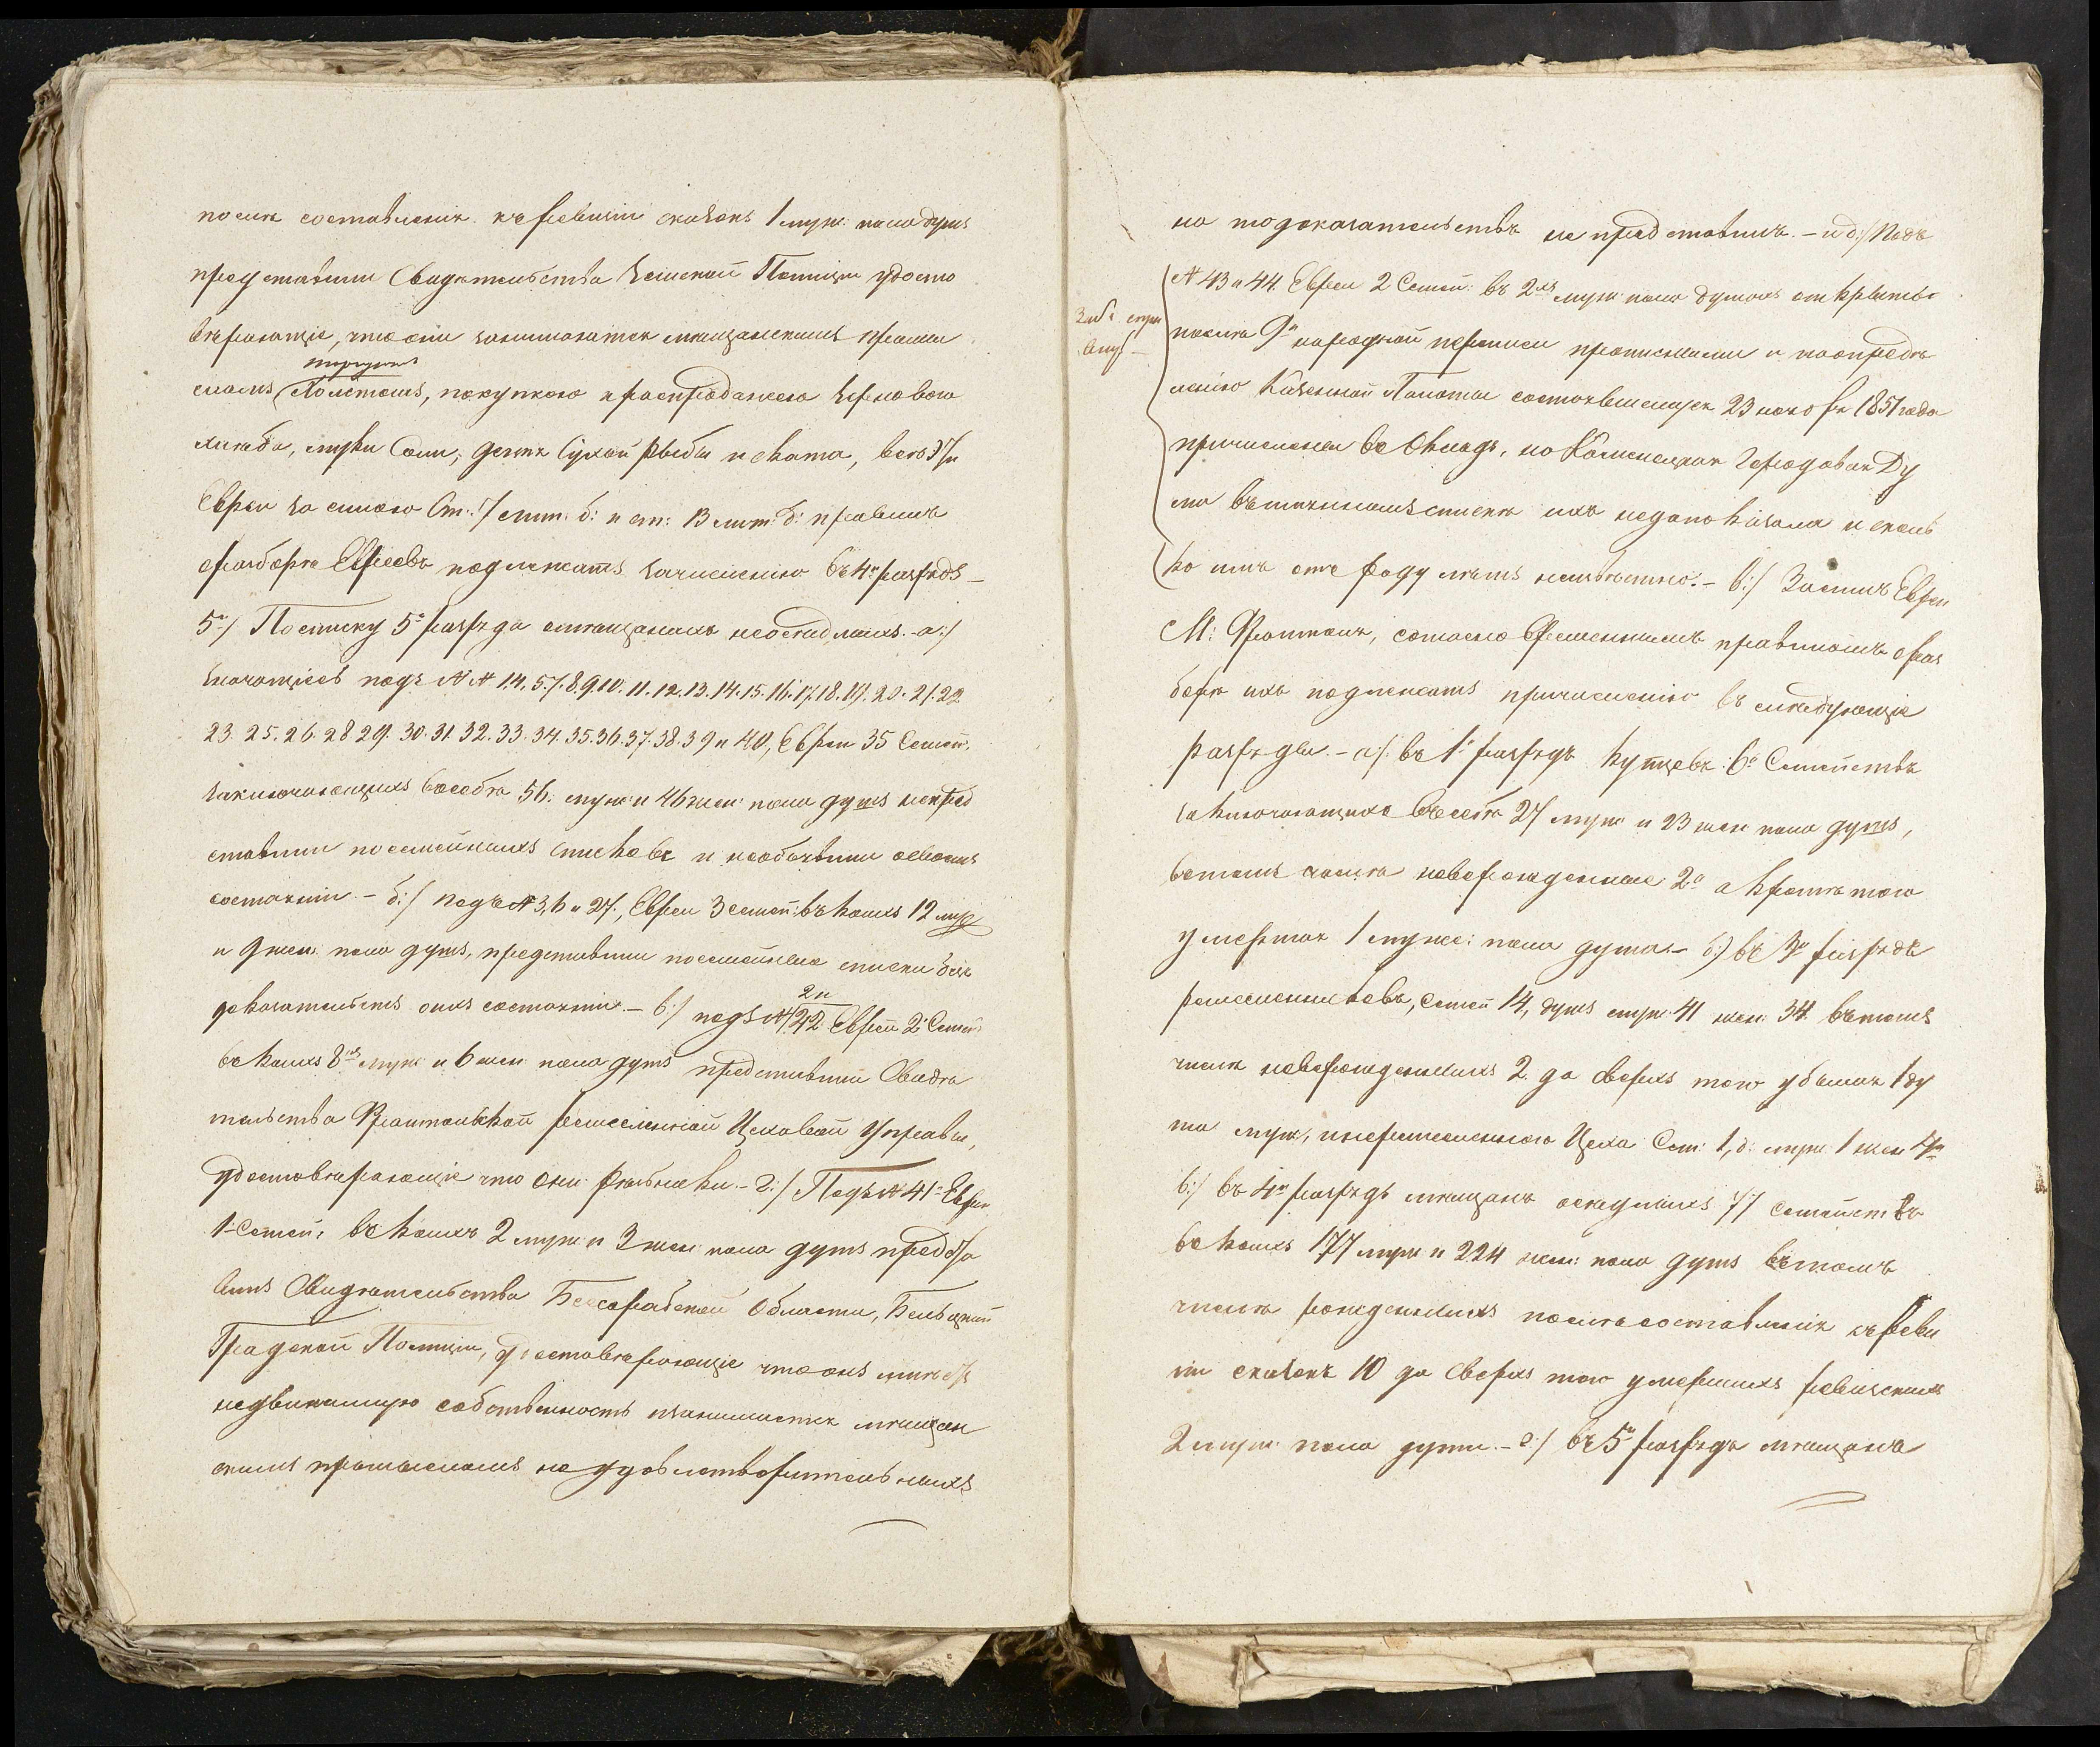 после составления къ ревизіи сказокъ 1 муж: пола душъ
представили Свидѣтельства Земской Полиціи удосто
вѣряющіе, что они занимаются мѣщанскимъ промы
торгуютъ
сломъ холстомъ, покупкою и распродажею зерноваго
хлѣба, муки Соли, дегтя Сухой рыбы и скота, всѣ эти
Евреи за силою Ст: 7 лит. б: и ст: 13 лит: б: правилъ
о разборѣ Евреевъ подлежатъ зачисленію въ 4й разрядъ –
5е:/ По списку 5го разряда о мѣщанахъ неосѣдлыхъ. – а:/
значащіесь подъ №№ 1.4, 5.7.8.9.10. 11. 12. 13. 14. 15. 16. 17. 18. 19. 20. 21. 22
23. 25. 26. 28 29. 30. 31. 32. 33. 34. 35. 36. 37. 38. 39 и 40, Евреи 35 Семей:
заключающихъ въ себѣ 56. муж: и 46 жен: пола душъ непред
ставили посемейныхъ списковъ и необъявили о своемъ
состояніи – б:/ подъ № 3, 6 и 27, Евреи 3 семей: въ коихъ 12 муж
и 9 жен: пола душъ, представили посемейные списки безъ
доказательствъ о ихъ состояніи. – в:/ подъ № 2 и 42. Евреи 2 Семей:
въ коихъ 8 муж: и 6 жен: пола душъ представили Свидѣ
тельства Рѣшительской ремесленной Цеховой Управы,
удостовѣряющіе что они рѣзники. – г:/ Подъ № 41м Еврей
1 Семей: въ коихъ 2 муж: и 3 жен: пола душъ предста
вилъ Свидѣтельства Бессарабской Области, Бельцкой
Градской Полиціи, удостовѣряющіе что онъ имѣетъ
недвижимую собственность изанимается мѣщан
скимъ промысломъ неудовлетворительныхъ
но то доказательствъ не представилъ. – и д:/ Подъ
№ 43 и 44. Евреи 2 Семей: въ 2хъ муж: пола душахъ открыты
послѣ 9й народной переписи прописными и по опредѣ
ленію Казенной Палаты состоявшемуся 23 ноября 1851 года
причислены въ Окладъ, но Городовая Ду
ма въ списку ихъ не показала и сколь
ко имъ отъ роду лѣтъ неизвѣстно. – 6:/ За симъ Евреи
М: согласно правиламъ о раз
борѣ ихъ подлежатъ причисленію въ слѣдующіе
разряды. – а:/ въ 1й разрядъ купцевъ: 6ть Семействъ
заключающихъ въ себѣ 27 муж: и 23 жен: пола душъ,
въ томъ числѣ новорожденные 2е а кромѣ того
умершая 1 муж: пола душа. – б:/ въ 3й разрядъ
ремесленниковъ, Семей 14, душъ муж: 41 жен: 34. въ томъ
числѣ новорожденныхъ 2. да сверхъ того убылая 1 ду
ша муж:, Цеха Сем: 1, д: муж: 1 жен 4ре
в:/ въ 4й разрядъ мѣщанъ осѣдлыхъ 71 семействъ
въ коихъ 177 муж: и 224 жен: пола душъ въ томъ
числѣ рожденныхъ послѣ составленія къ реви
зіи сказокъ 10 да сверхъ того умершихъ ревизскихъ
2 муж: пола душъ. – г:/ въ 5й разрядъ мѣщанъ